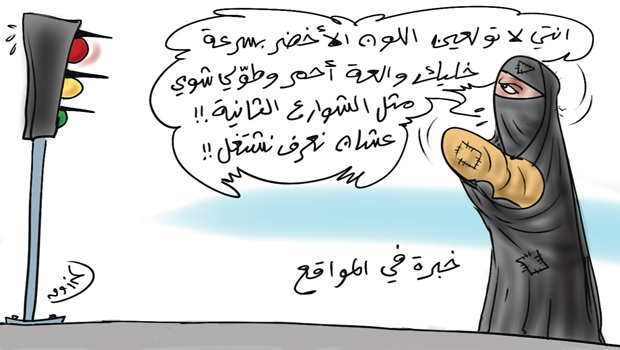 انتي لا تولعين اللون الأخضر بسرعة
خليك والعة أحمر وطوّلي شوي
مثل الشوارع الثانية..!!
عشان نعرف نشتغل!!
خبرة في المواقع